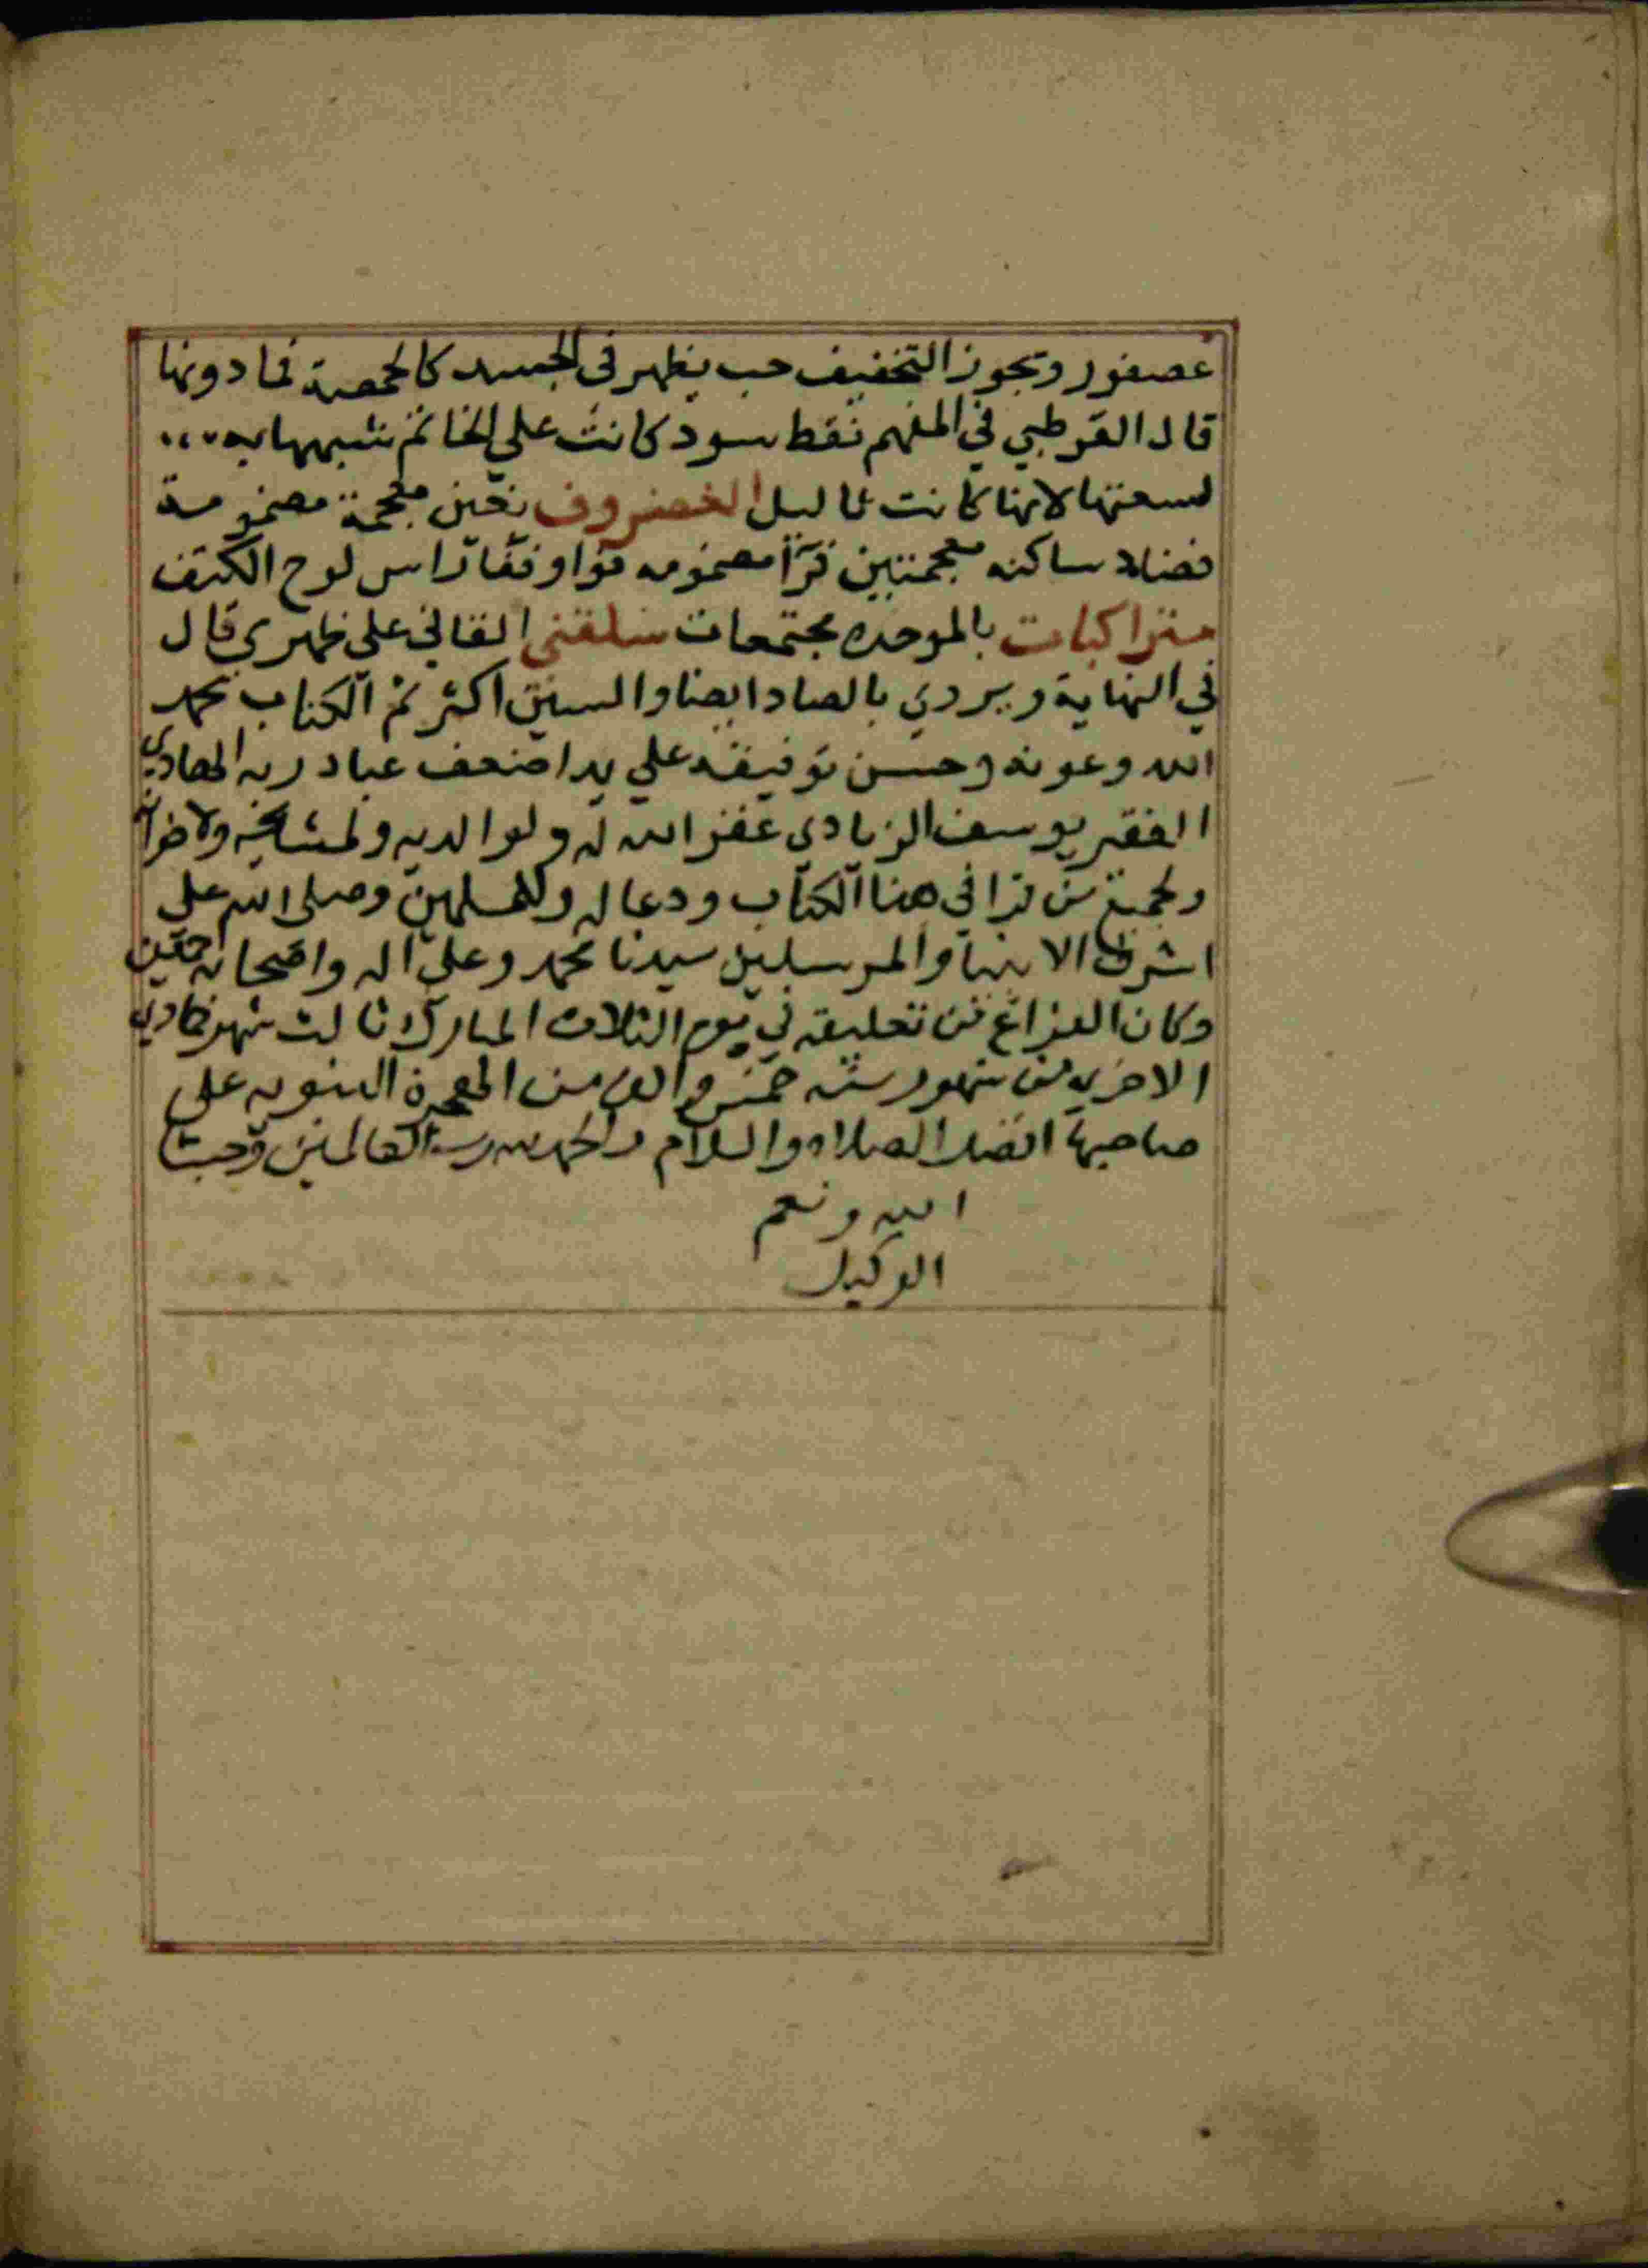 عصفور ويجوز التخفيف حب يظهر في الجسد كالحمصة فما دونها
قال القرطبي في المفهم نقط سود كانت على الخاتم شبهها به
لسعتها لانها كانت ثاليل الغضروف بغين معجمة مضمومة
فضاد ساكنه معجمتين فرآ مضمومه فواو ففآ راس لوح الكتف
متراكبات بالموحده مجتمعات سلقني القاني على ظهري قال
في النهاية ويروي بالصاد ايضا والسين اكثر تم الكتاب بحمد
الله وعونه وحسن توفيقه علي يد اضعف عباد ربه الهادي
الفقير يوسف الزيادي غفر الله له ولوالديه ولمشايخه ولاخوانه
ولجميع من قرا في هذا الكتاب ودعا له وللمسلمين وصلى الله على
اشرف الانبيا والمرسلين سيدنا محمد وعلى اله واصحابه اجمعين
وكان الفراغ من تعليقه في يوم الثلاث المبارك ثالث شهر جمادي
الاخر من شهور سنه خمس والف من الهجرة النبويه على
صاحبها افضل الصلاه والسلام والحمد لله رب العالمين وحسبنا
الله ونعم
الوكيل